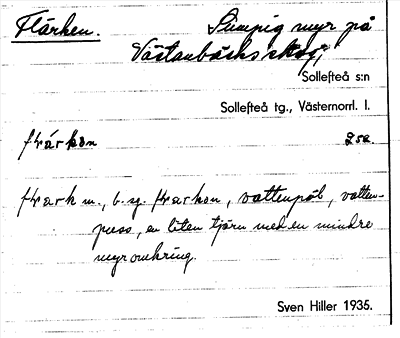 Flärken. Sumpig myr på
Västanbäcks skog,
Sollefteå s:n
Sollefteå tg., Västernorrl. l.
flärkən 2 sa.
flark m., b. sg. flarkən, vattenpöl, vatten-
puss, en liten tjärn med en mindre
myr omkring.
Sven Hiller 1935.